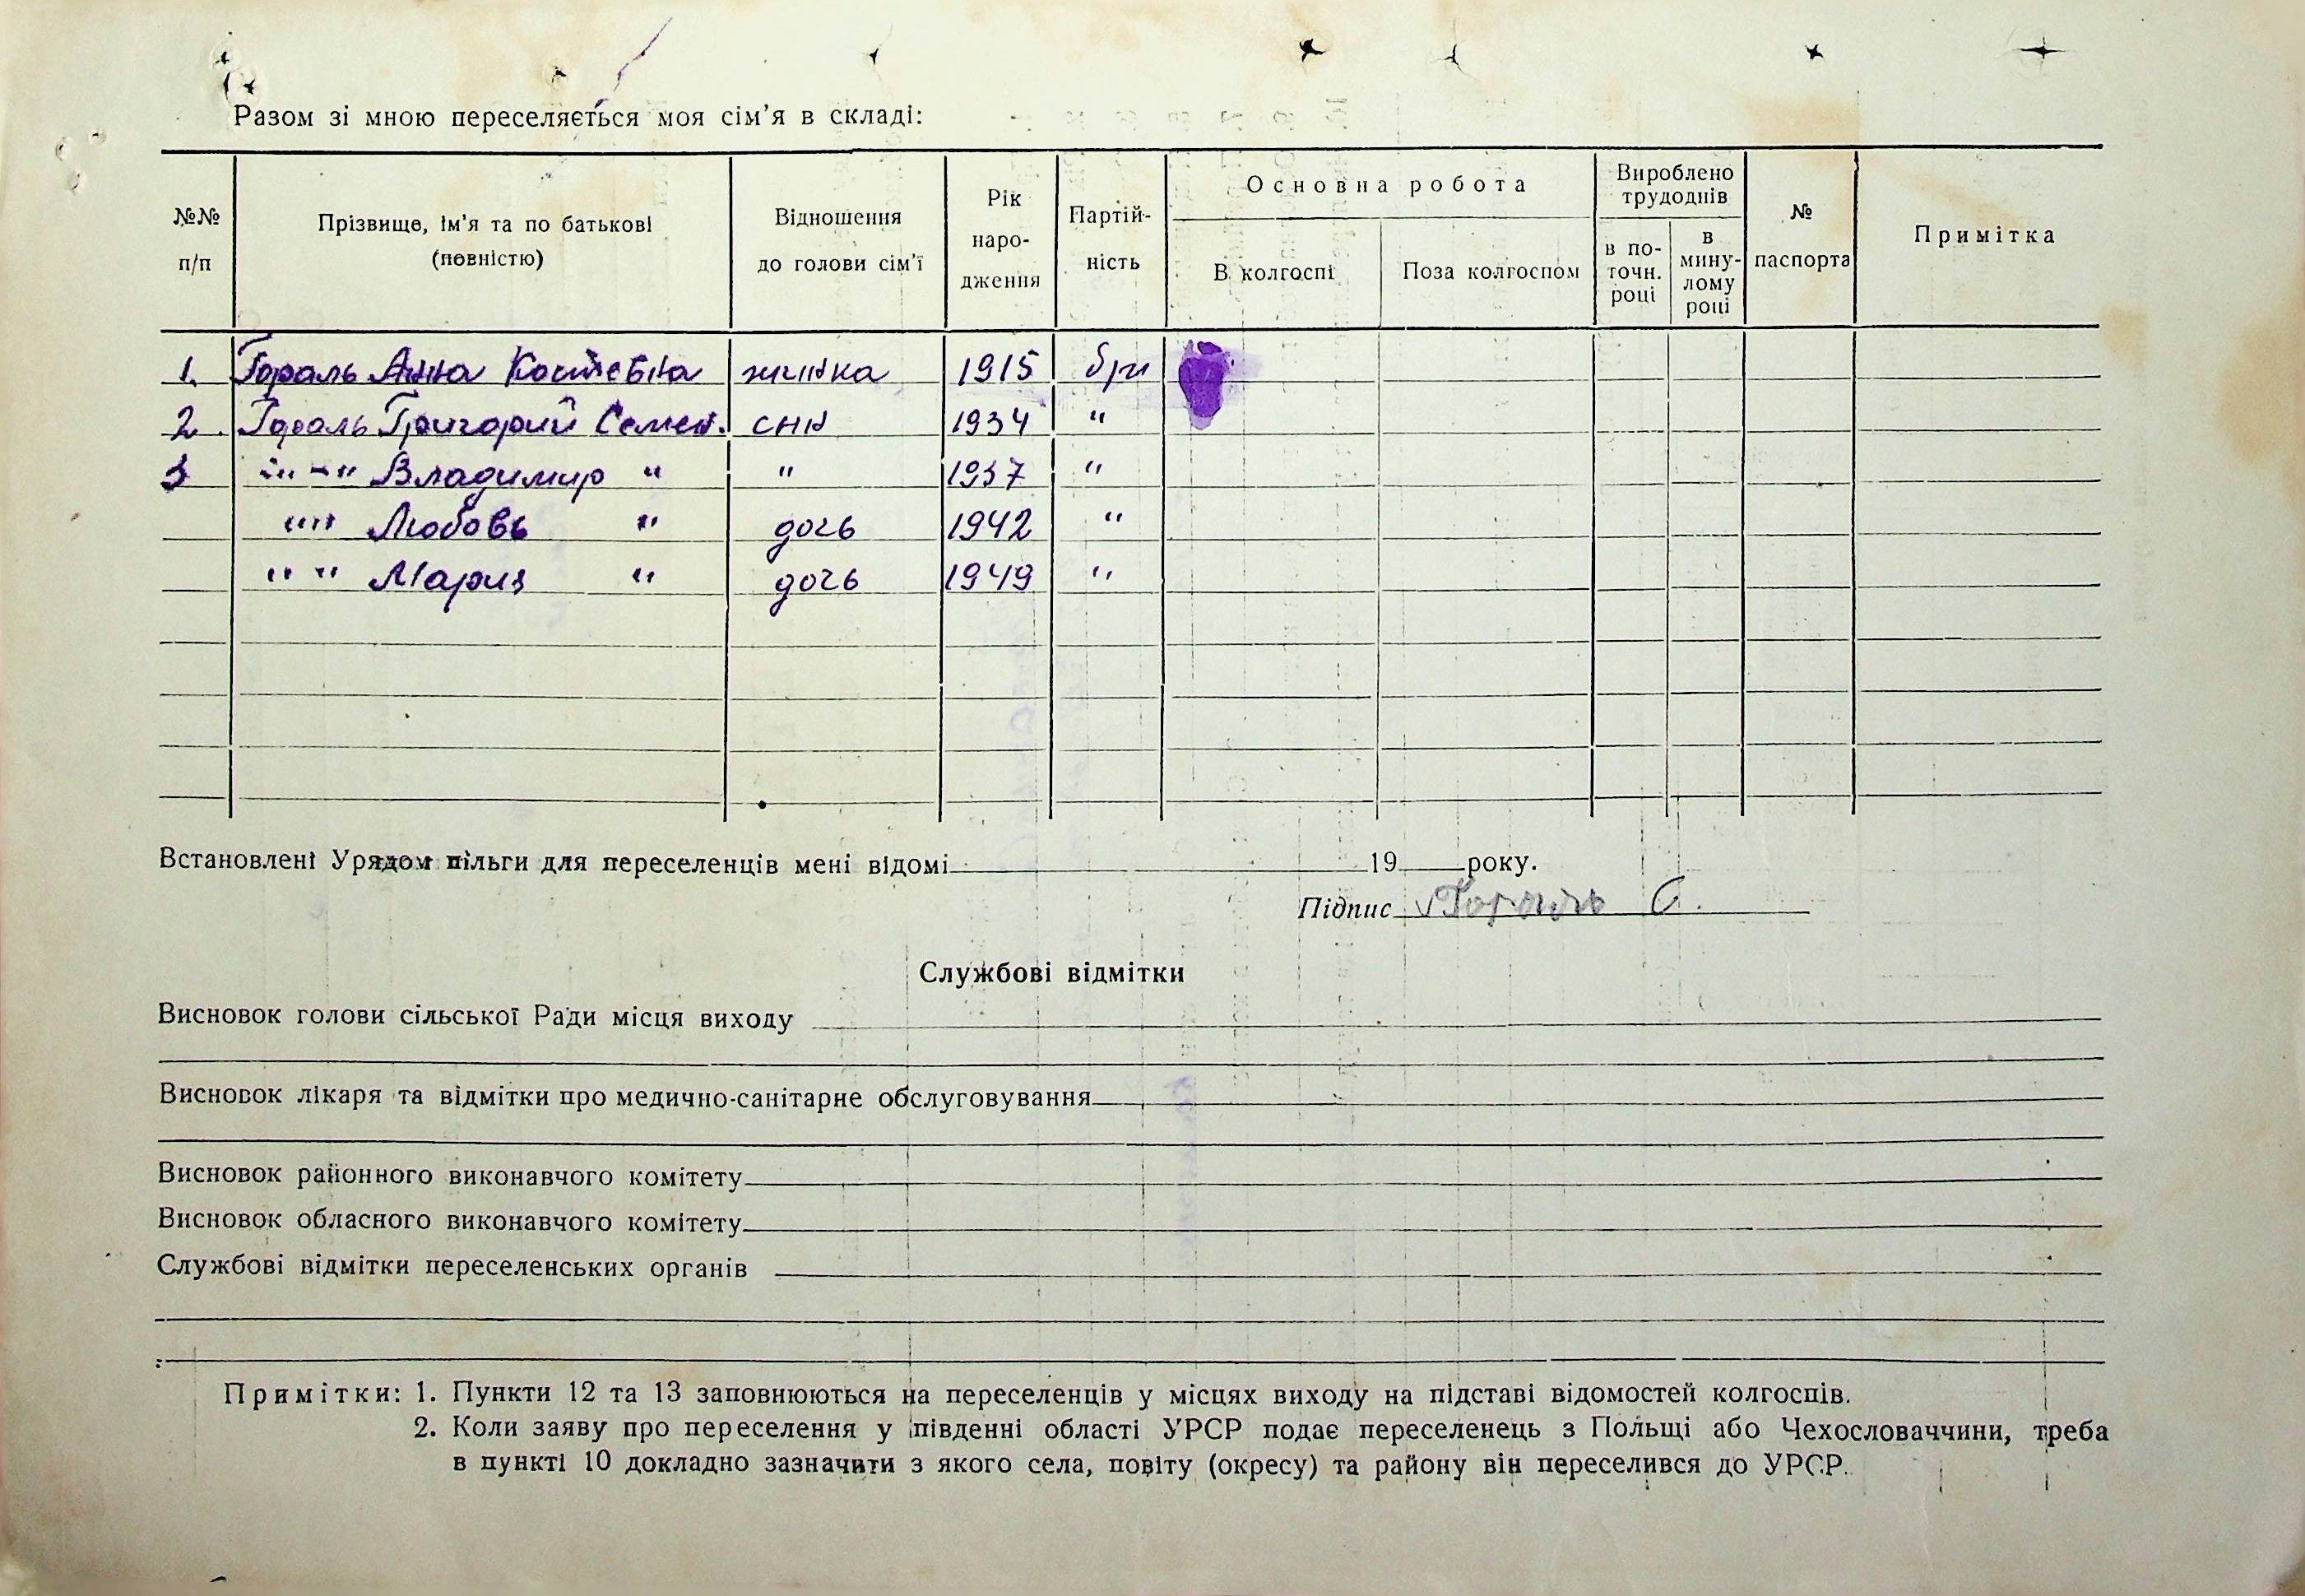 Разом зі мною переселяється моя сім'я в складі:
№№ п/п | Прізвище, ім'я та по батькові (повністю) | Відношення до голови сім'ї | Рік народження | Партій-ність | Основна робота | Вироблено трудоднів | № паспорта | Примітка
В колгоспі | Поза колгоспом | в по-точн. році | в мину-лому році
1. Гораль Анна Костевна жинка 1915 бри
2. Гораль Григорий Семен. сын 1934 "
3 " - " Владимир " " 1937 "
" " Любовь " дочь 1942 "
" " Мария " дочь 1949 "
Встановлені Урядом пільги для переселенців мені відомі 19 року.
Підпис Гораль С.
Службові відмітки
Висновок голови сільської Ради місця виходу
Висновок лікаря та відмітки про медично-санітарне обслуговування
Висновок районного виконавчого комітету
Висновок обласного виконавчого комітету
Службові відмітки переселенських органів
Примітки: 1. Пункти 12 та 13 заповнюються на переселенців у місцях виходу на підставі відомостей колгоспів.
2. Коли заяву про переселення у південні області УРСР подає переселенець з Польщі або Чехословаччини, треба
в пункті 10 докладно зазначити з якого села, повіту (окресу) та району він переселився до УРСР.